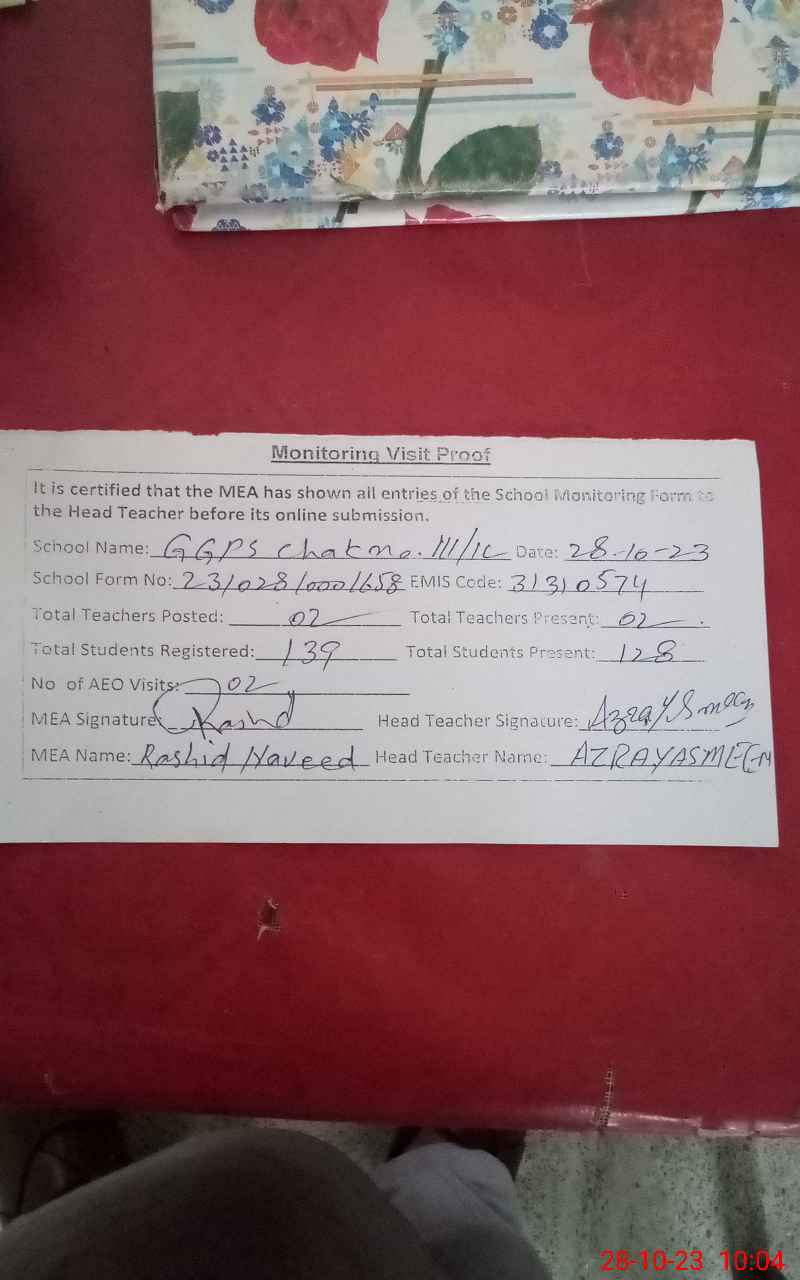 Monitoring Visit Proof
It is certified that the MEA has shown all entries of the School Monitoring Form to
the Head Teacher before its online submission.
School Name: GGPS Chak no. 111/1L Date: 28-10-23
School Form No: 231028100001658 EMIS Code: 31310574
Total Teachers Posted: 02 Total Teachers Present: 02
Total Students Registered: 139 Total Students Present: 128
No of AEO Visits: 02
MEA Signature: Rashid Head Teacher Signature: Azra Yasmeen
MEA Name: Rashid Naveed Head Teacher Name: AZRA YASMEEN
28-10-23 10:04